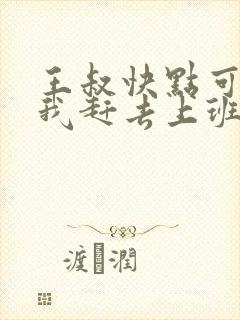 王叔快點可
我赶去上班
渡 潤